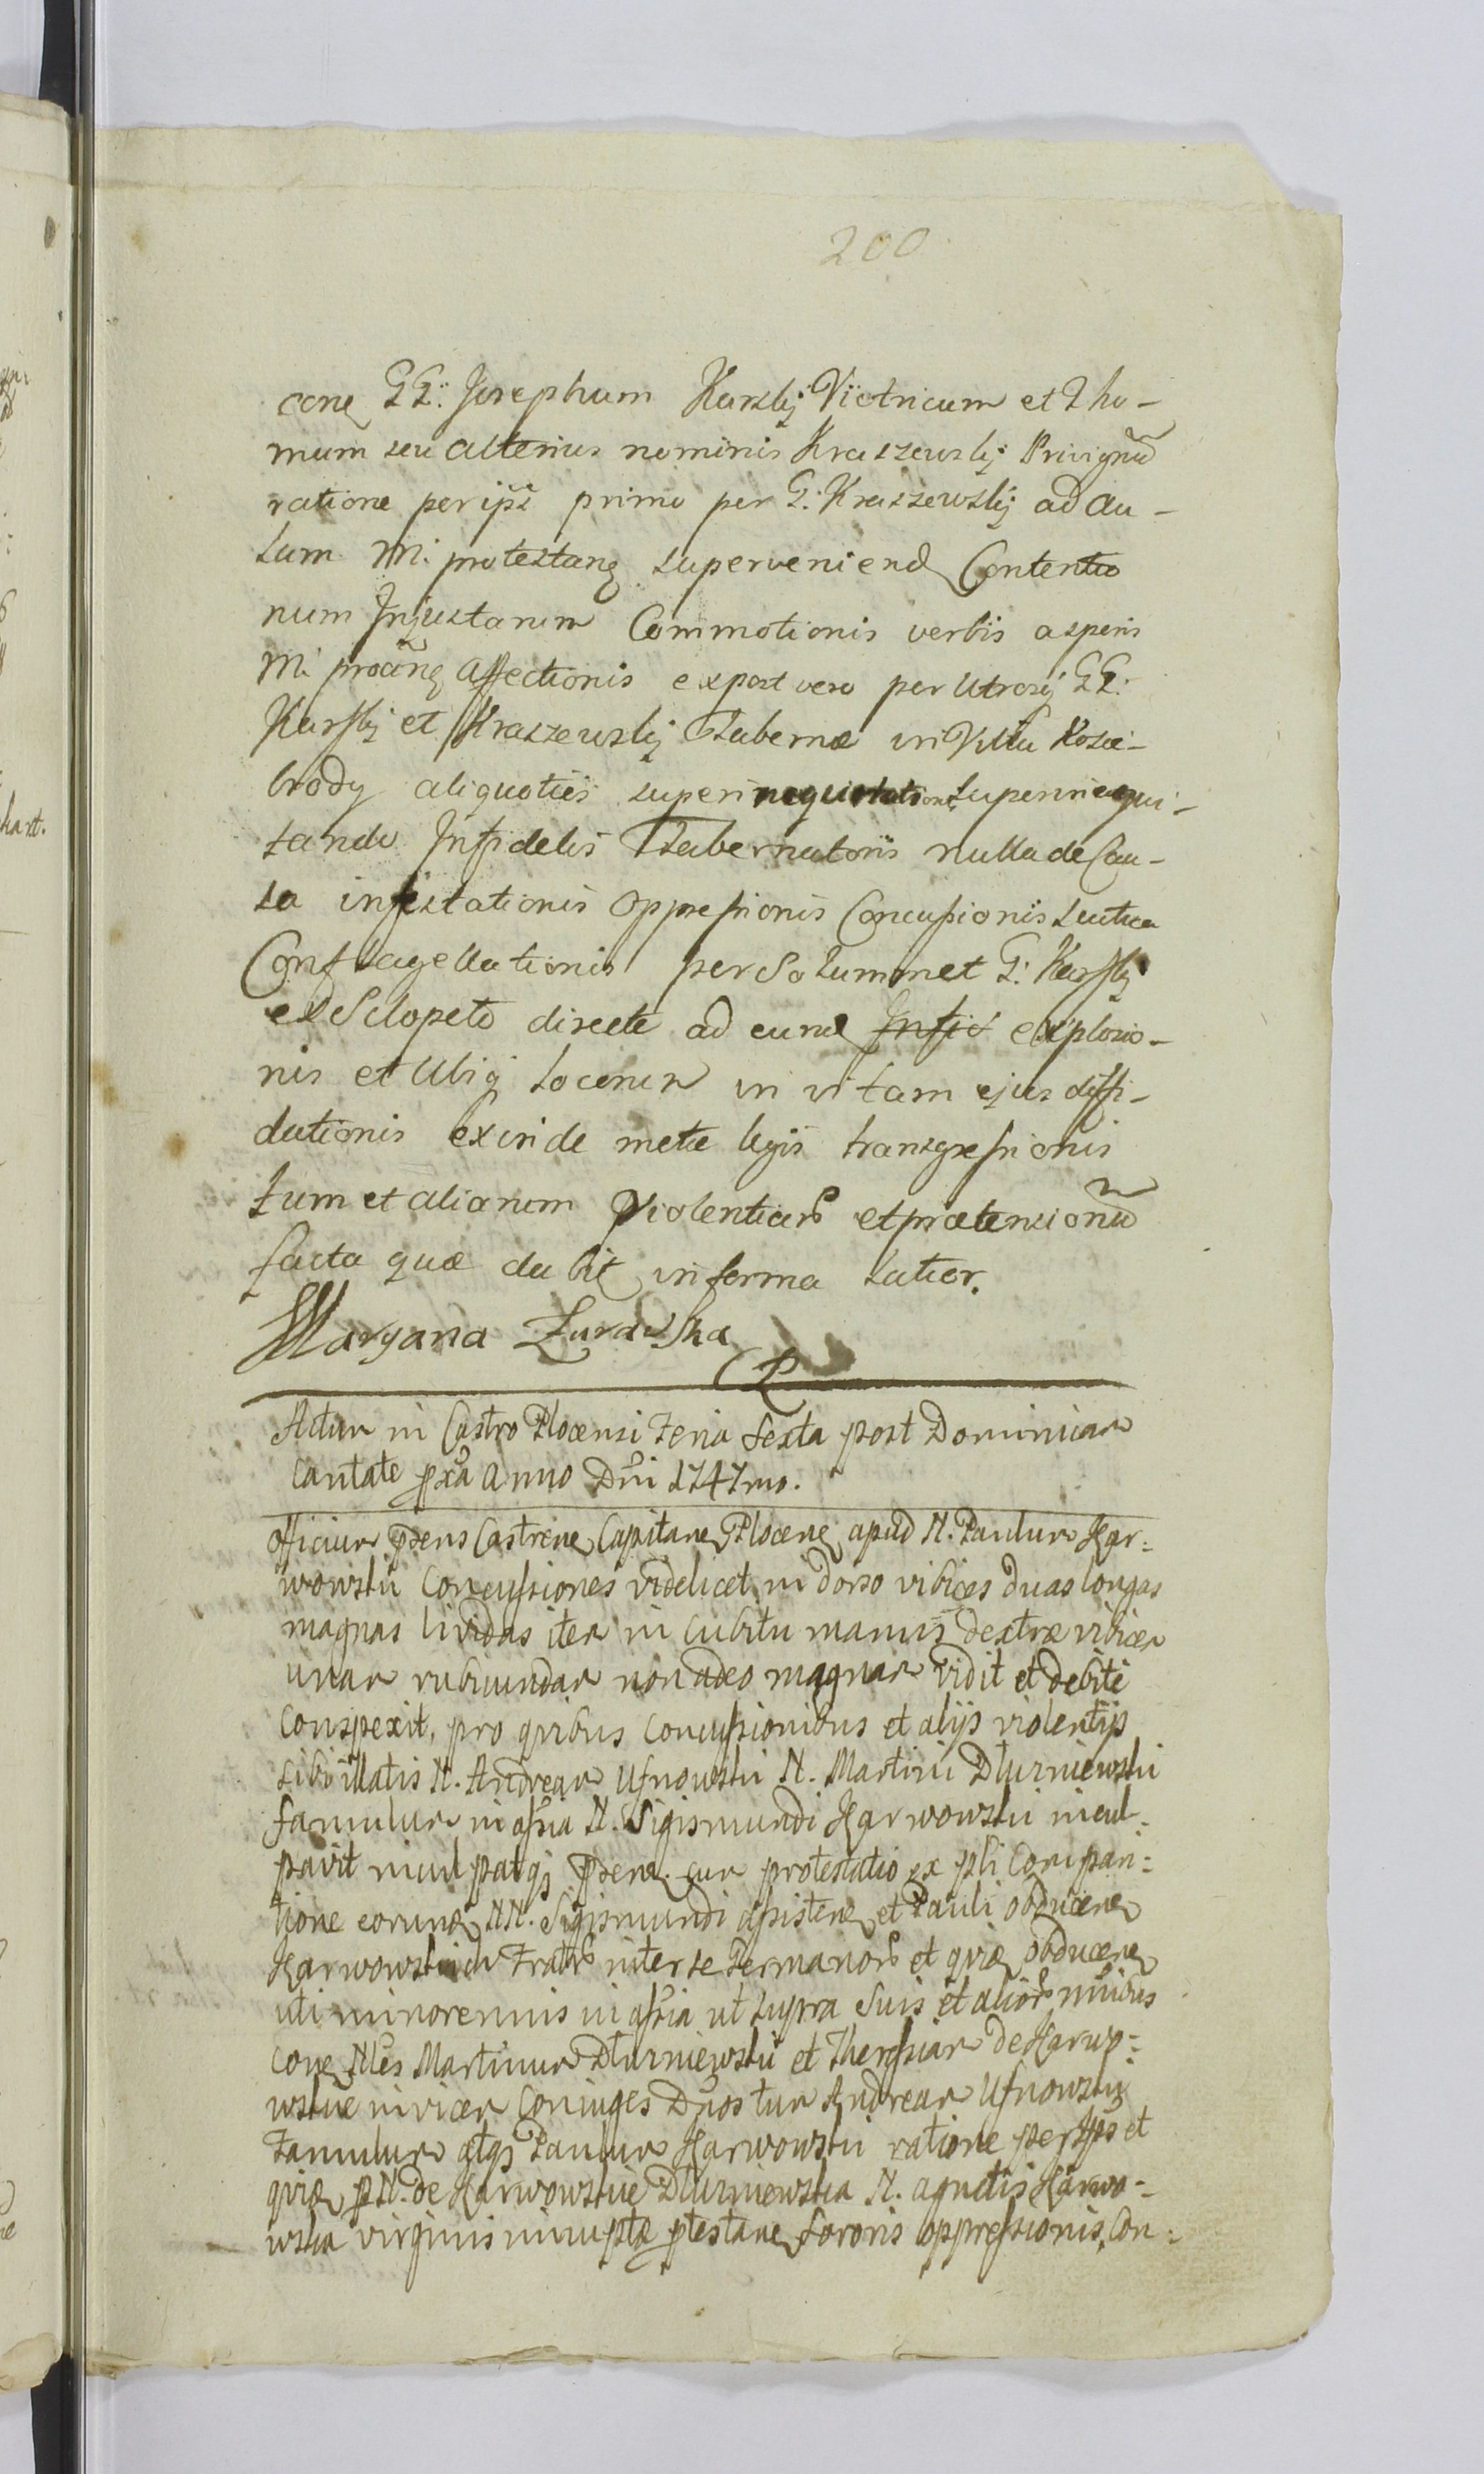 200
cone GG: Josephum Karski Vitricum et Tho-
mam seu alterius nominis Kraszewski Privignũ
ratione per ips primo per G: Kraszewski ad au-
lam M: protestans superveniend Contentio
num Injustarum Commotionis verbis asperis
M: protãne Affectionis expost vero per Utrosq GG:
Karski et Kraszewski Tabernæ in Villa Kozie-
brody aliquoties superinequitatione superinequi-
tando Infidelis Tabernatoris nulla de Cau-
sa infestationis Oppressionis Concussionis scutica
Conflagellationis per Solummet G: Karski
ex Sclopeto directe ad eund Infid explosio-
nis et Ubiq Locorum in vitam ejus diffi-
dationis exinde metæ legis transgressionis
tum et aliarum Violentiarũ et prætensionũ
facta quæ dabit in forma latior.
Maryana Zurawska
Actum in Castro Plocensi Feria Sexta post Dominicam
Cantate pxã Anno Dñi 1747mo.
Officium p̃sens Castrense Capitane Plocense apud N. Paulum Kar:
wowski Concussiones videlicet in dorso vibices duas longas
magnas lividas item in Cubitu manus dextræ vibicem
unam rubicundam non adeo magnam vidit et debite
Conspexit, pro quibus Concussionibus et alijs violentijs
sibi illatis N. Andream Ufnowski N. Martini Dłuzniewski
famulum in assña N. Sigismundi Karwowski incul-
pavit inculpatq p̃sene. cum protestatio ex pli Compari:
tione eorund NN. Sigismundi assistene et Pauli obducene
Karwowskich Fratrũ inter se Germanorũ et quid obducene
uti minorennis in assña ut supra suis et aliorũ nñibus
Cone Nles Martinum Dłuzniewski et Theressiam de Karwo:
wskie invicem Coniuges Dnos tum Andream Ufnowski
Famulum atqs Paulum Karwowski ratione per Ips et
quid p N. de Karwowskie Dłuzniewska N. Agnetis Karwo-
wska virginis innuptæ p̃testane Sororis oppressionis, Con: